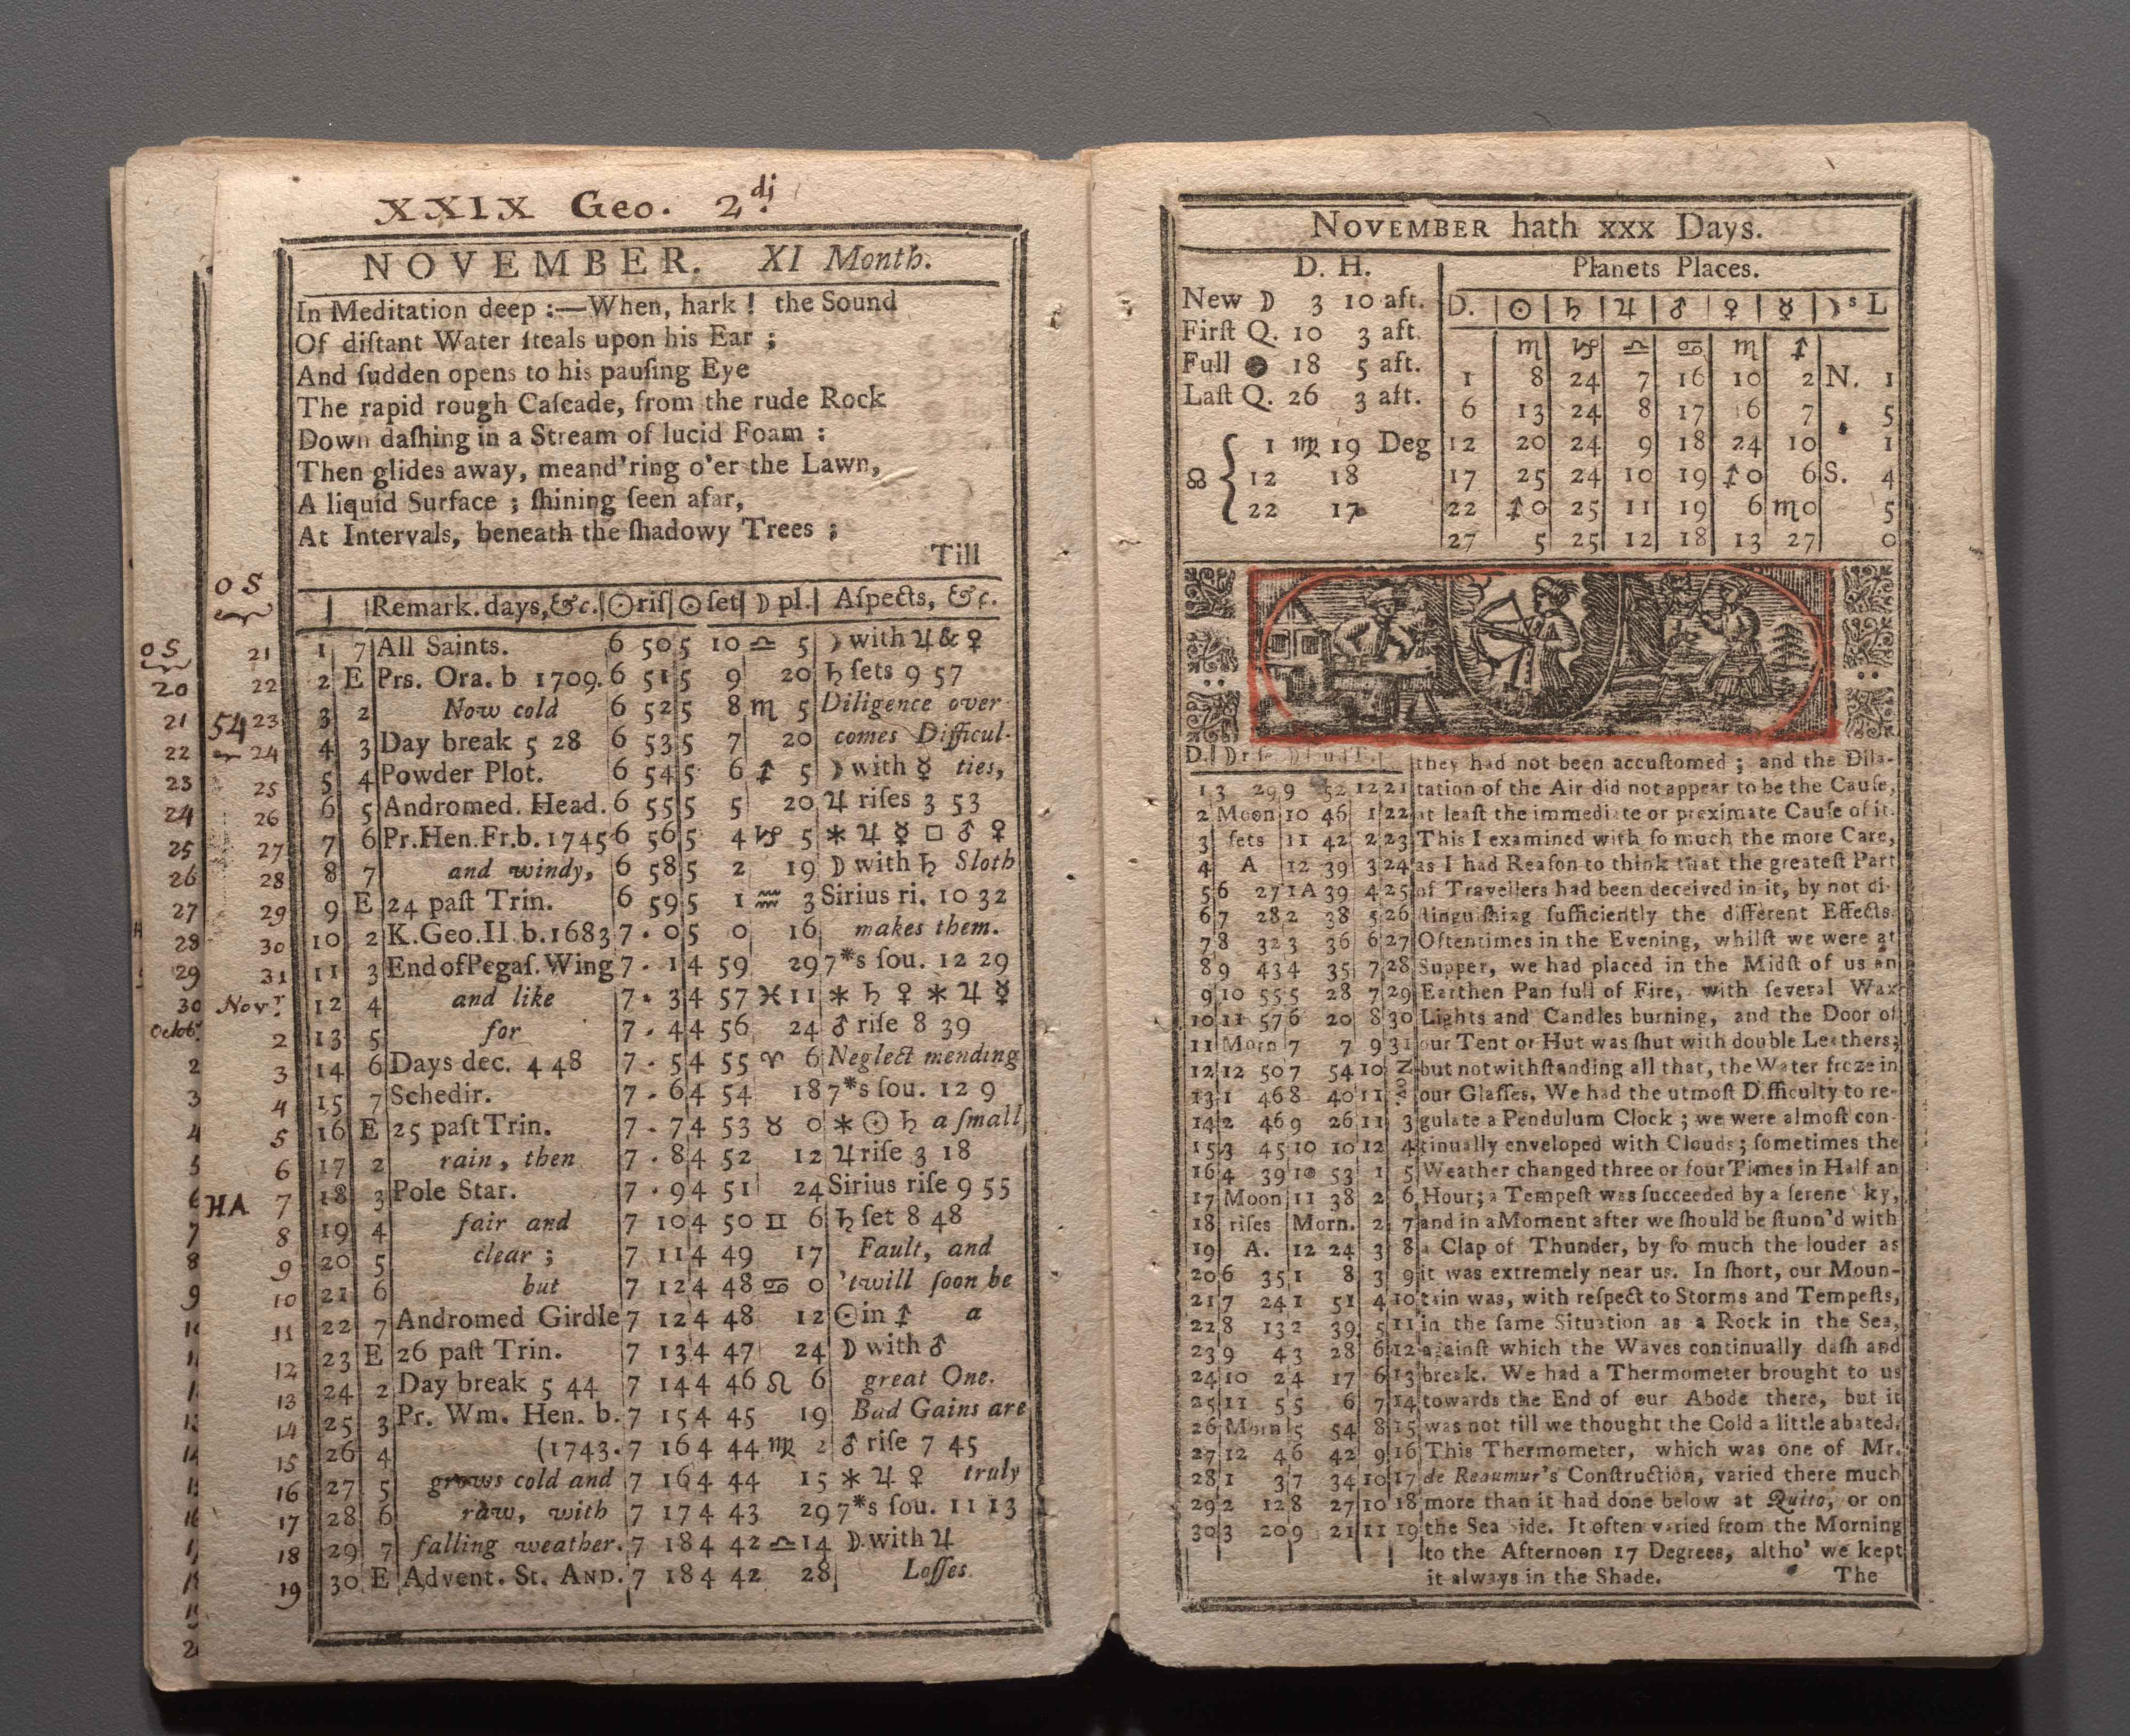 XXIX Geo. 2.dj
NOVEMBER. XI Month.
In Meditation deep :—When, hark ! the Sound
Of diſtant Water ſteals upon his Ear ;
And ſudden opens to his pauſing Eye
The rapid rough Caſcade, from the rude Rock
Down daſhing in a Stream of lucid Foam :
Then glides away, meand'ring o'er the Lawn,
A liquid Surface ; ſhining ſeen afar,
At Intervals, beneath the ſhadowy Trees ;
Till
OS
OS
Remark. days, &c. ☉ riſ ☉ ſet ☽ pl. Aſpects, &c.
21 1 7 All Saints. 6 50 5 10 ♎ 5 ☽ with ♃ & ♀
20 22 2 E Prs. Ora. b 1709. 6 51 5 9 20 ♄ ſets 9 57
21 54 23 3 2 Now cold 6 52 5 8 ♏ 5 Diligence over
22 24 4 3 Day break 5 28 6 53 5 7 20 comes Difficul-
23 25 5 4 Powder Plot. 6 54 5 6 ♐ 5 ☽ with ☿ ties,
24 26 6 5 Andromed. Head. 6 55 5 5 20 ♃ riſes 3 53
25 27 7 6 Pr. Hen. Fr. b. 1745 6 56 5 4 ♑ 5 ✱ ♃ ☿ □ ♂ ♀
26 28 8 7 and windy, 6 58 5 2 19 ☽ with ♄ Sloth
27 29 9 E 24 paſt Trin. 6 59 5 1 ♒ 3 Sirius ri. 10 32
28 30 10 2 K. Geo. II b. 1683 7 0 5 0 16 makes them.
29 31 11 3 End of Pegaſ. Wing 7 1 4 59 29 7*s ſou. 12 29
30 Novr. 12 4 and like 7 3 4 57 ♓ 11 ✱ ♄ ♀ ✱ ♃ ☿
Octobr. 2 13 5 for 7 4 4 56 24 ♂ riſe 8 39
2 3 14 6 Days dec. 4 48 7 5 4 55 ♈ 6 Neglect mending
3 4 15 7 Schedir. 7 6 4 54 18 7*s ſou. 12 9
4 5 16 E 25 paſt Trin. 7 7 4 53 ♉ 0 ✱ ☉ ♄ a ſmall
5 6 17 2 rain, then 7 8 4 52 12 ♃ riſe 3 18
6 HA 7 18 3 Pole Star. 7 9 4 51 24 Sirius riſe 9 55
7 8 19 4 fair and 7 10 4 50 ♊ 6 ♄ ſet 8 48
8 9 20 5 clear ; 7 11 4 49 17 Fault, and
9 10 21 6 but 7 12 4 48 ♋ 0 'twill ſoon be
11 22 7 Andromed Girdle 7 12 4 48 12 ☉ in ♐ a
12 23 E 26 paſt Trin. 7 13 4 47 24 ☽ with ♂
13 24 2 Day break 5 44 7 14 4 46 ♌ 6 great One.
14 25 3 Pr. Wm. Hen. b. 7 15 4 45 19 Bad Gains are
15 26 4 (1743. 7 16 4 44 ♍ 2 ♂ riſe 7 45
16 27 5 grows cold and 7 16 4 44 15 ✱ ♃ ♀ truly
17 28 6 raw, with 7 17 4 43 29 7*s ſou. 11 13
18 29 7 falling weather. 7 18 4 42 ♎ 14 ☽ with ♃
19 30 E Advent. St. AND. 7 18 4 42 28 Loſſes.
NOVEMBER hath xxx Days.
D. H.
New ☽ 3 10 aft.
Firſt Q. 10 3 aft.
Full ● 18 5 aft.
Laſt Q. 26 3 aft.
☊ { 1 ♍ 19 Deg
12 18
22 17
Planets Places.
D. ☉ ♄ ♃ ♂ ♀ ☿ ☽s L
♏ ♑ ♎ ♋ ♏ ♐
1 8 24 7 16 10 2 N. 1
6 13 24 8 17 16 7 5
12 20 24 9 18 24 10 1
17 25 24 10 19 ♐ 0 6 S. 4
22 ♐ 0 25 11 19 6 ♏ 0 5
27 5 25 12 18 13 27 0
D. they had not been accuſtomed ; and the Dila-
1 3 29 9 52 12 21 tation of the Air did not appear to be the Cauſe,
2 Moon 10 46 1 22 at leaſt the immediate or proximate Cauſe of it.
3 ſets 11 42 2 23 This I examined with ſo much the more Care,
4 A 12 39 3 24 as I had Reaſon to think that the greateſt Part
5 6 27 1A 39 4 25 of Travellers had been deceived in it, by not di-
6 7 28 2 38 5 26 ſtinguiſhing ſufficiently the different Effects.
7 8 32 3 36 6 27 Oftentimes in the Evening, whilſt we were at
8 9 43 4 35 7 28 Supper, we had placed in the Midſt of us an
9 10 55 5 28 7 29 Earthen Pan full of Fire, with ſeveral Wax
10 11 57 6 20 8 30 Lights and Candles burning, and the Door of
11 Morn 7 7 9 31 our Tent or Hut was ſhut with double Leathers;
12 12 50 7 54 10 Nov. but notwithſtanding all that, the Water froze in
13 1 46 8 40 11 our Glaſſes. We had the utmoſt Difficulty to re-
14 2 46 9 26 11 3 gulate a Pendulum Clock ; we were almoſt con-
15 3 45 10 10 12 4 tinually enveloped with Clouds; ſometimes the
16 4 39 10 53 1 5 Weather changed three or four Times in Half an
17 Moon 11 38 2 6 Hour; a Tempeſt was ſucceeded by a ſerene ky,
18 riſes Morn. 2 7 and in a Moment after we ſhould be ſtunn'd with
19 A. 12 24 3 8 a Clap of Thunder, by ſo much the louder as
20 6 35 1 8 3 9 it was extremely near us. In ſhort, our Moun-
21 7 24 1 51 4 10 tain was, with reſpect to Storms and Tempeſts,
22 8 13 2 39 5 11 in the ſame Situation as a Rock in the Sea,
23 9 4 3 28 6 12 againſt which the Waves continually daſh and
24 10 2 4 17 6 13 break. We had a Thermometer brought to us
25 11 5 5 6 7 14 towards the End of our Abode there, but it
26 Morn 5 54 8 15 was not till we thought the Cold a little abated.
27 12 4 6 42 9 16 This Thermometer, which was one of Mr.
28 1 3 7 34 10 17 de Reaumur's Conſtruction, varied there much
29 2 12 8 27 10 18 more than it had done below at Quito, or on
30 3 20 9 21 11 19 the Sea Side. It often varied from the Morning
to the Afternoon 17 Degrees, altho' we kept
it always in the Shade. The